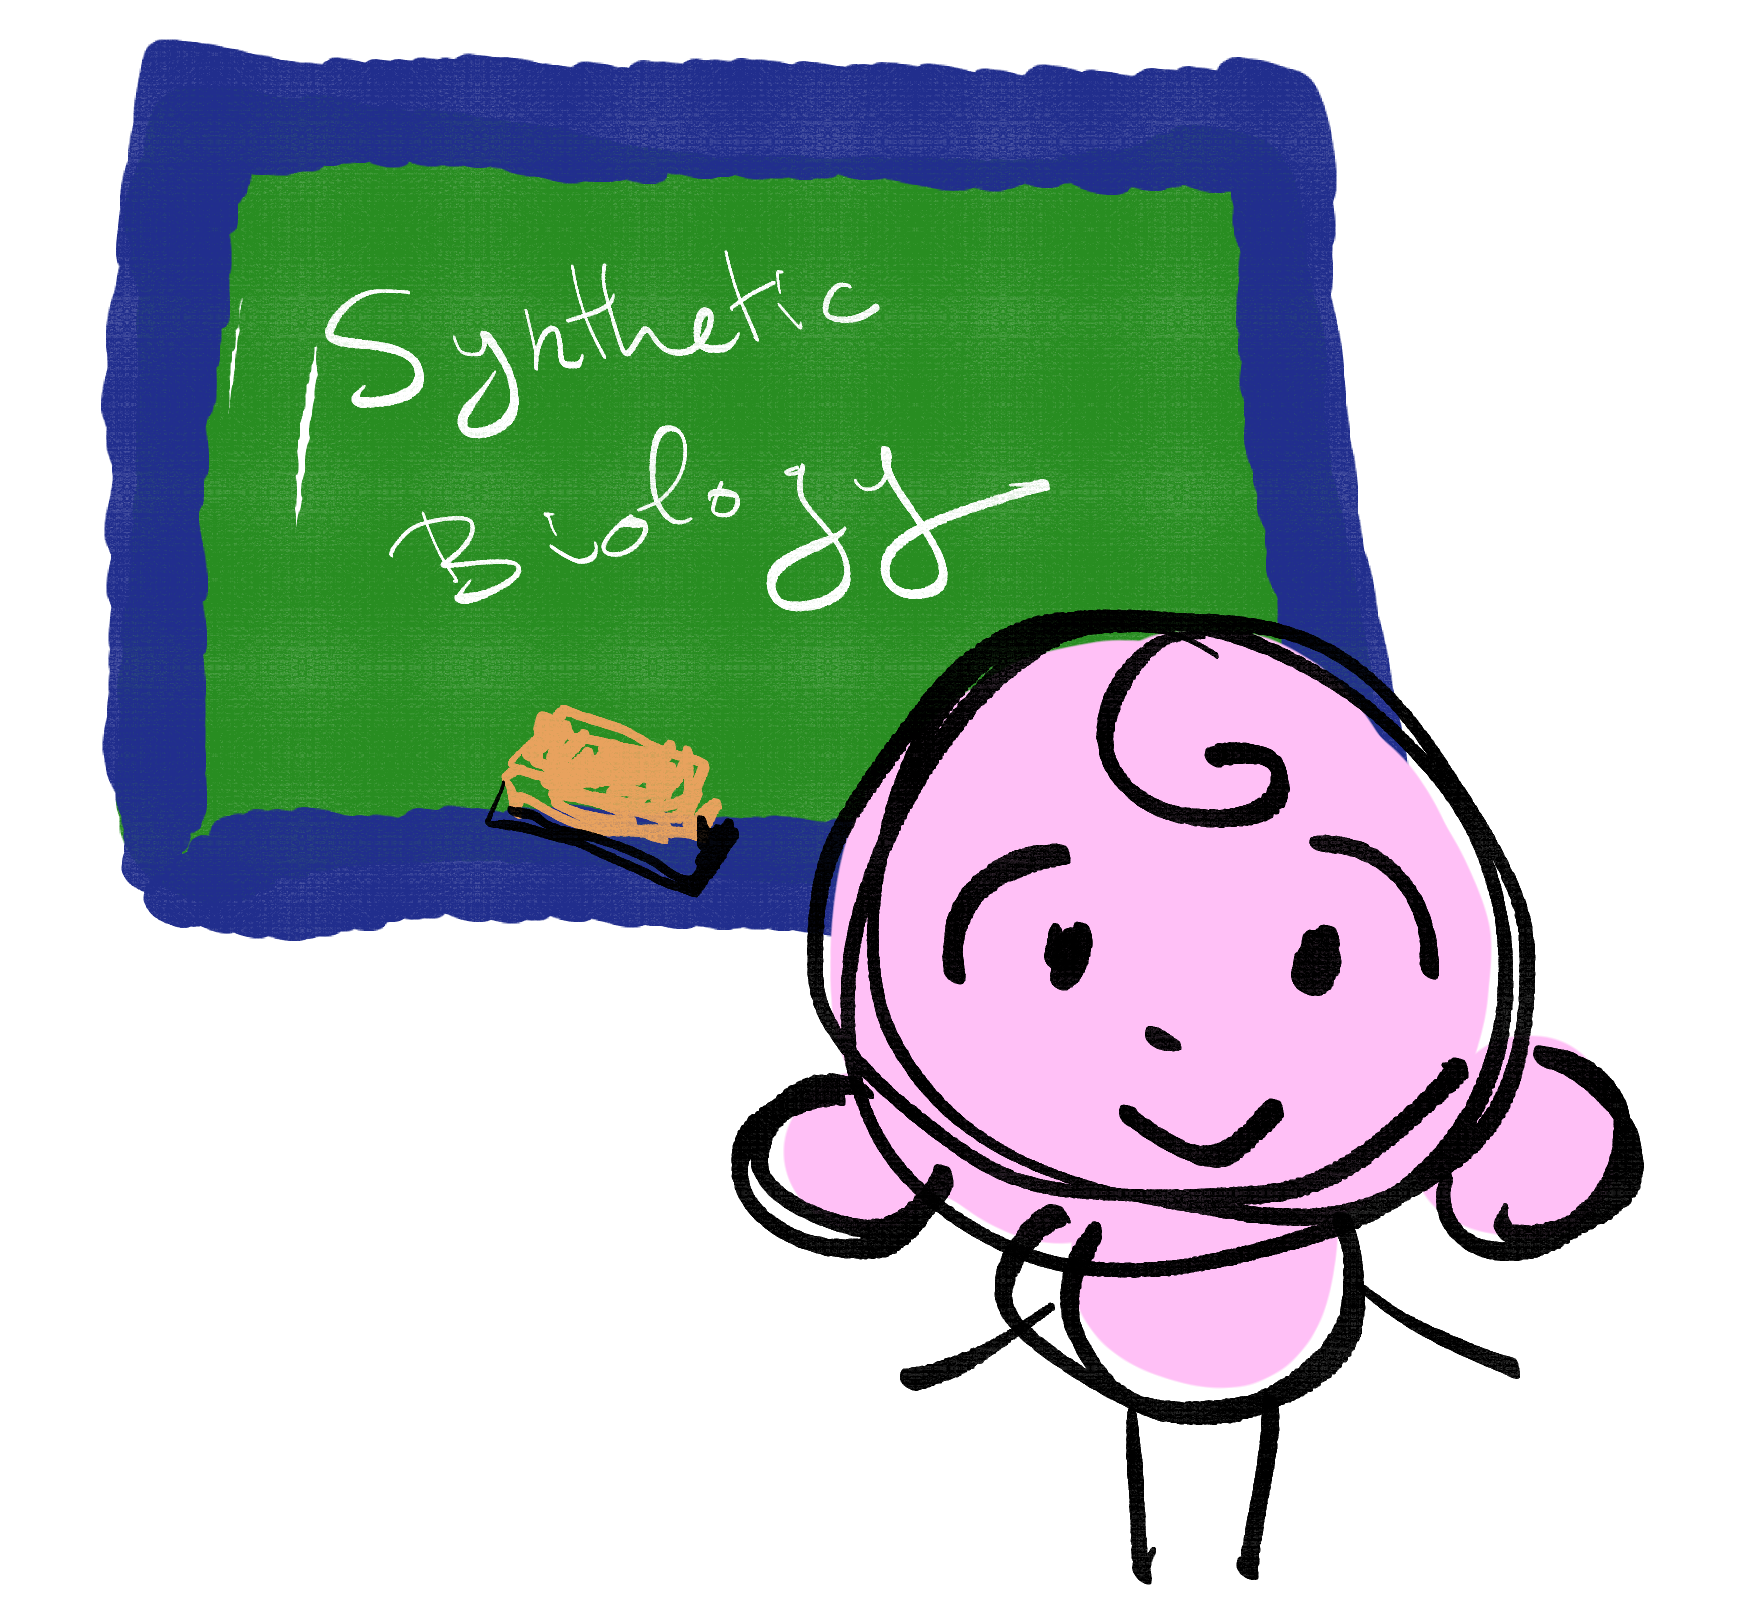 Synthetic
Biology